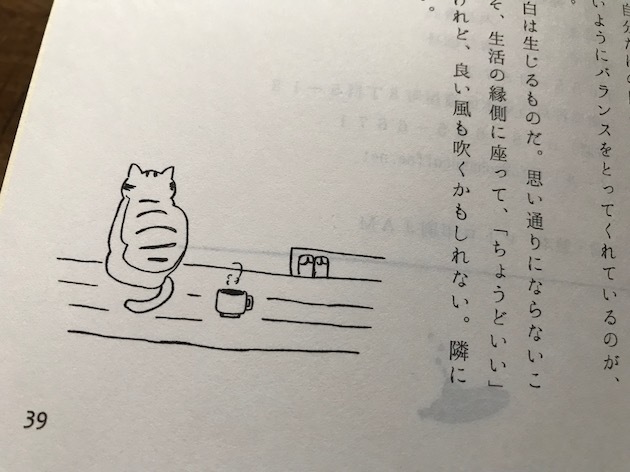 いようにバランスをとってくれているのが、
。
白は生じるものだ。思い通りにならないこ
そ、生活の縁側に座って、「ちょうどいい」
けれど、良い風も吹くかもしれない。隣に
。
39